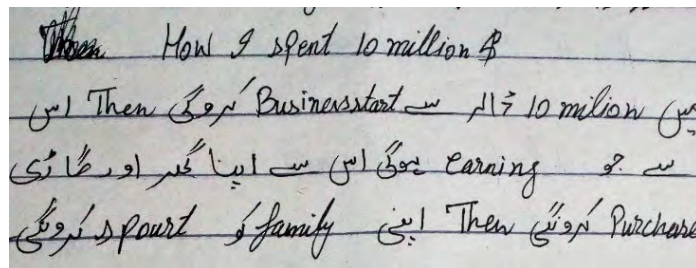 How I spent 10 million $
میں 10 milion ڈالر سے Businessstart کروگی Then اس
سے جو earning ہوگی اس سے اپنا گھر اور گاڑی
Purchase کرونگی Then اپنی family کو spourt کرونگی